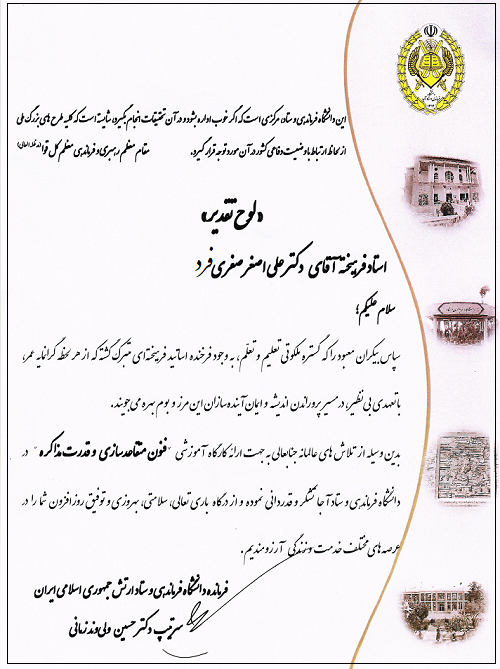 این دانشگاه فرماندهی و ستاد، مرکزی است که اگر خوب اداره بشود و در آن تحقیقات انجام بگیرد، شایسته است که کلیه طرح های بزرگ ملی
از لحاظ ارتباط با وضعیت دفاعی کشور در آن مورد توجه قرار گیرد. مقام معظم رهبری و فرماندهی معظم کل قوا (مدظله العالی)
«لوح تقدیر»
استاد فرهیخته آقای دکتر علی اصغر صفری فرد
سلام علیکم؛
سپاس بیکران معبود را که گستره ملکوتی تعلیم و تعلّم، به وجود فرخنده اساتید فرهیخته‌ای متبرک گشته که از هر لحظه گرانمایه عمر،
با تعهدی بی نظیر، در مسیر پروراندن اندیشه و ایمان آینده سازان این مرز و بوم بهره می جویند.
بدین وسیله از تلاش های عالمانه جنابعالی به جهت ارائه کارگاه آموزشی "فنون متقاعدسازی و قدرت مذاکره" در
دانشگاه فرماندهی و ستاد آجا تشکر و قدردانی نموده و از درگاه باری تعالی، سلامتی، بهروزی و توفیق روزافزون شما را در
عرصه های مختلف خدمت و زندگی آرزومندیم.
فرمانده دانشگاه فرماندهی و ستاد ارتش جمهوری اسلامی ایران
سرتیپ دکتر حسین ولی وند زمانی